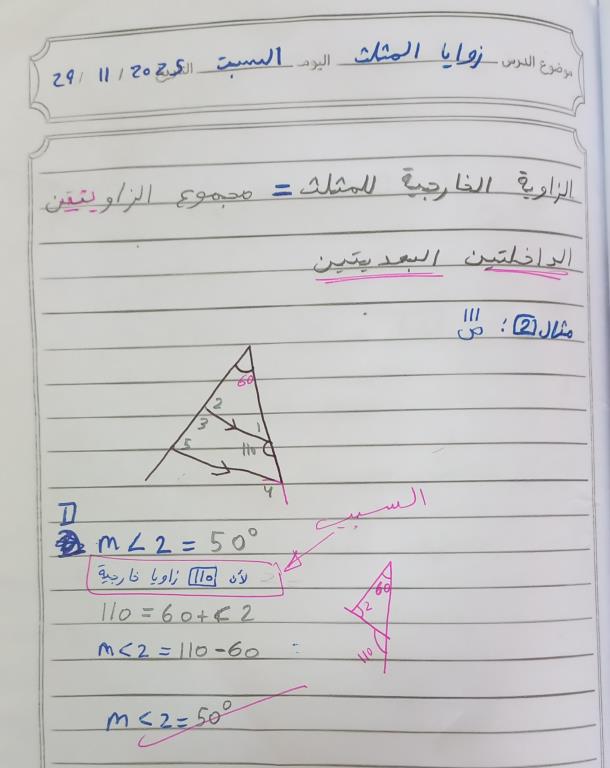 موضوع الدرس زوايا المثلث اليوم السبت التاريخ 29/11/2025
الزاوية الخارجية للمثلث = مجموع الزاويتين
الداخلتين البعديتين
مثال 2 : ص 111
60
2
3
1
110
5
4
1
السبب
m<2 = 50°
لأن 110 زاويا خارجية
110 = 60 + <2
m<2 = 110 - 60
m<2 = 50°
60
2
110